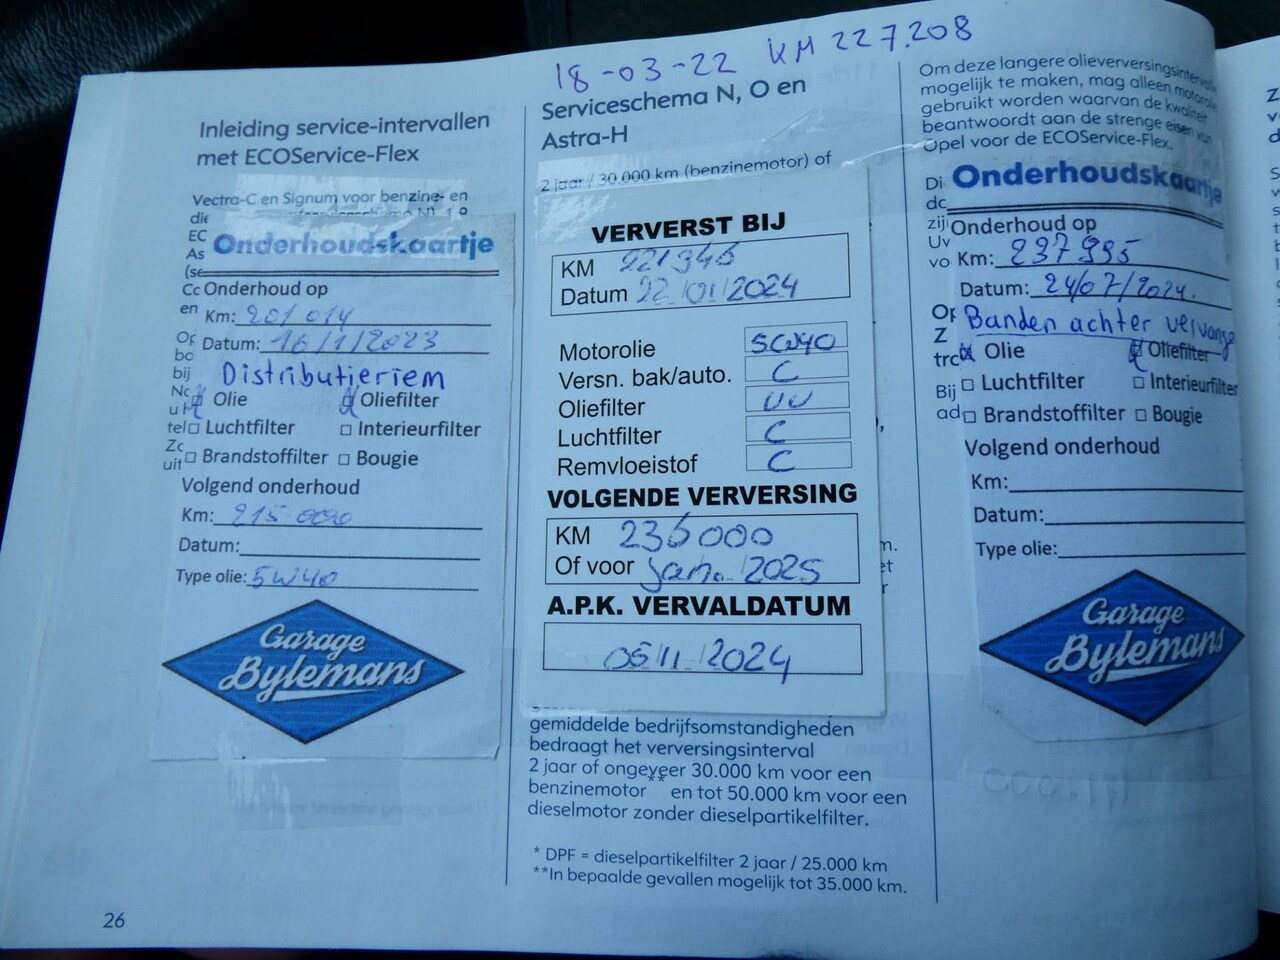 18-03-22 KM 227.208
Inleiding service-intervallen
met ECOService-Flex
Vectra-C en Signum voor benzine- en
die
EC
As
(se
Cc
en
Op
bo
bij
No
u h
tel
Zc
uit
Onderhoudskaartje
Onderhoud op
Km: 201 014
Datum: 16/1/2023
Distributieriem
Olie Oliefilter
Luchtfilter Interieurfilter
Brandstoffilter Bougie
Volgend onderhoud
Km: 215 000
Datum:
Type olie: 5W40
Garage
Bylemans
26
Serviceschema N, O en
Astra-H
2 jaar / 30.000 km (benzinemotor) of
VERVERST BIJ
KM 221946
Datum 22/01/2024
Motorolie 5W40
Versn. bak/auto. C
Oliefilter UU
Luchtfilter C
Remvloeistof C
VOLGENDE VERVERSING
KM 236000
Of voor jan. 2025
A.P.K. VERVALDATUM
05/11/2024
gemiddelde bedrijfsomstandigheden
bedraagt het verversingsinterval
2 jaar of ongeveer 30.000 km voor een
benzinemotor** en tot 50.000 km voor een
dieselmotor zonder dieselpartikelfilter.
* DPF = dieselpartikelfilter 2 jaar / 25.000 km
**In bepaalde gevallen mogelijk tot 35.000 km.
Om deze langere olieverversingsinterval
mogelijk te maken, mag alleen motorolie
gebruikt worden waarvan de kwaliteit
beantwoordt aan de strenge eisen van
Opel voor de ECOService-Flex.
Di
dc
zij
Uv
vo
Op
Z
trc
Bij
ad
Onderhoudskaartje
Onderhoud op
Km: 237 995
Datum: 24/07/2024.
Banden achter vervangen
Olie Oliefilter
Luchtfilter Interieurfilter
Brandstoffilter Bougie
Volgend onderhoud
Km:
Datum:
Type olie:
Garage
Bylemans